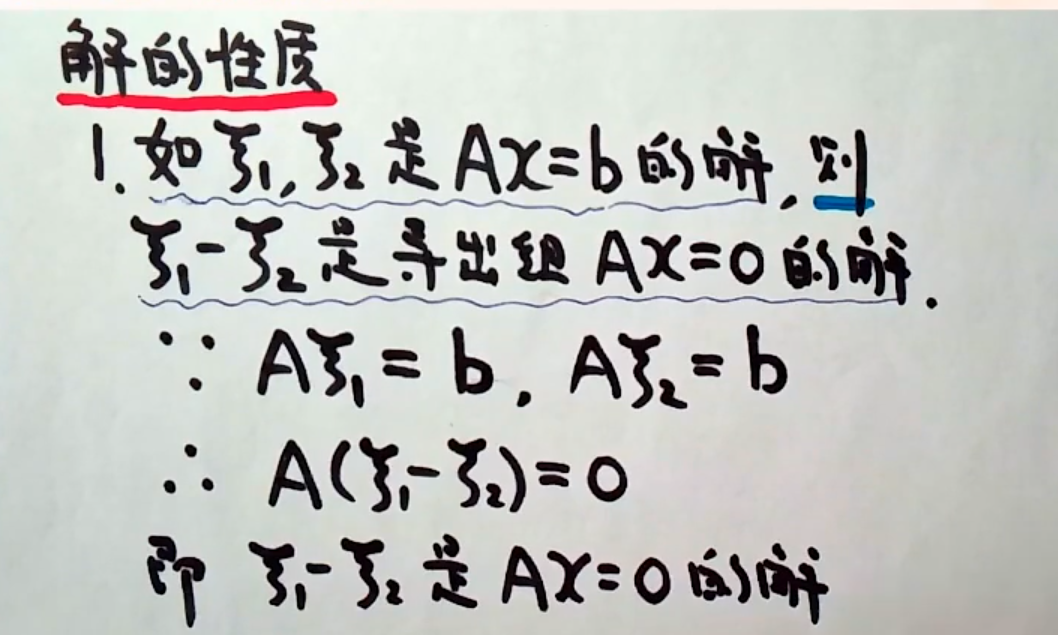 解的性质
1. 如ξ₁, ξ₂是Ax=b的解, 则
ξ₁-ξ₂是导出组Ax=0的解.
∵ Aξ₁=b, Aξ₂=b
∴ A(ξ₁-ξ₂)=0
即 ξ₁-ξ₂是Ax=0的解